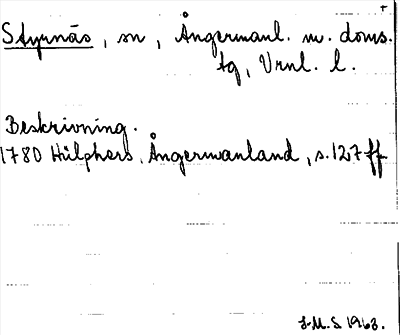 Styrnäs, sn, Ångermanl. m. doms.
tg, Vrnl. l.
Beskrivning.
1780 Hülphers, Ångermanland, s. 127 ff
L.M.S 1963.